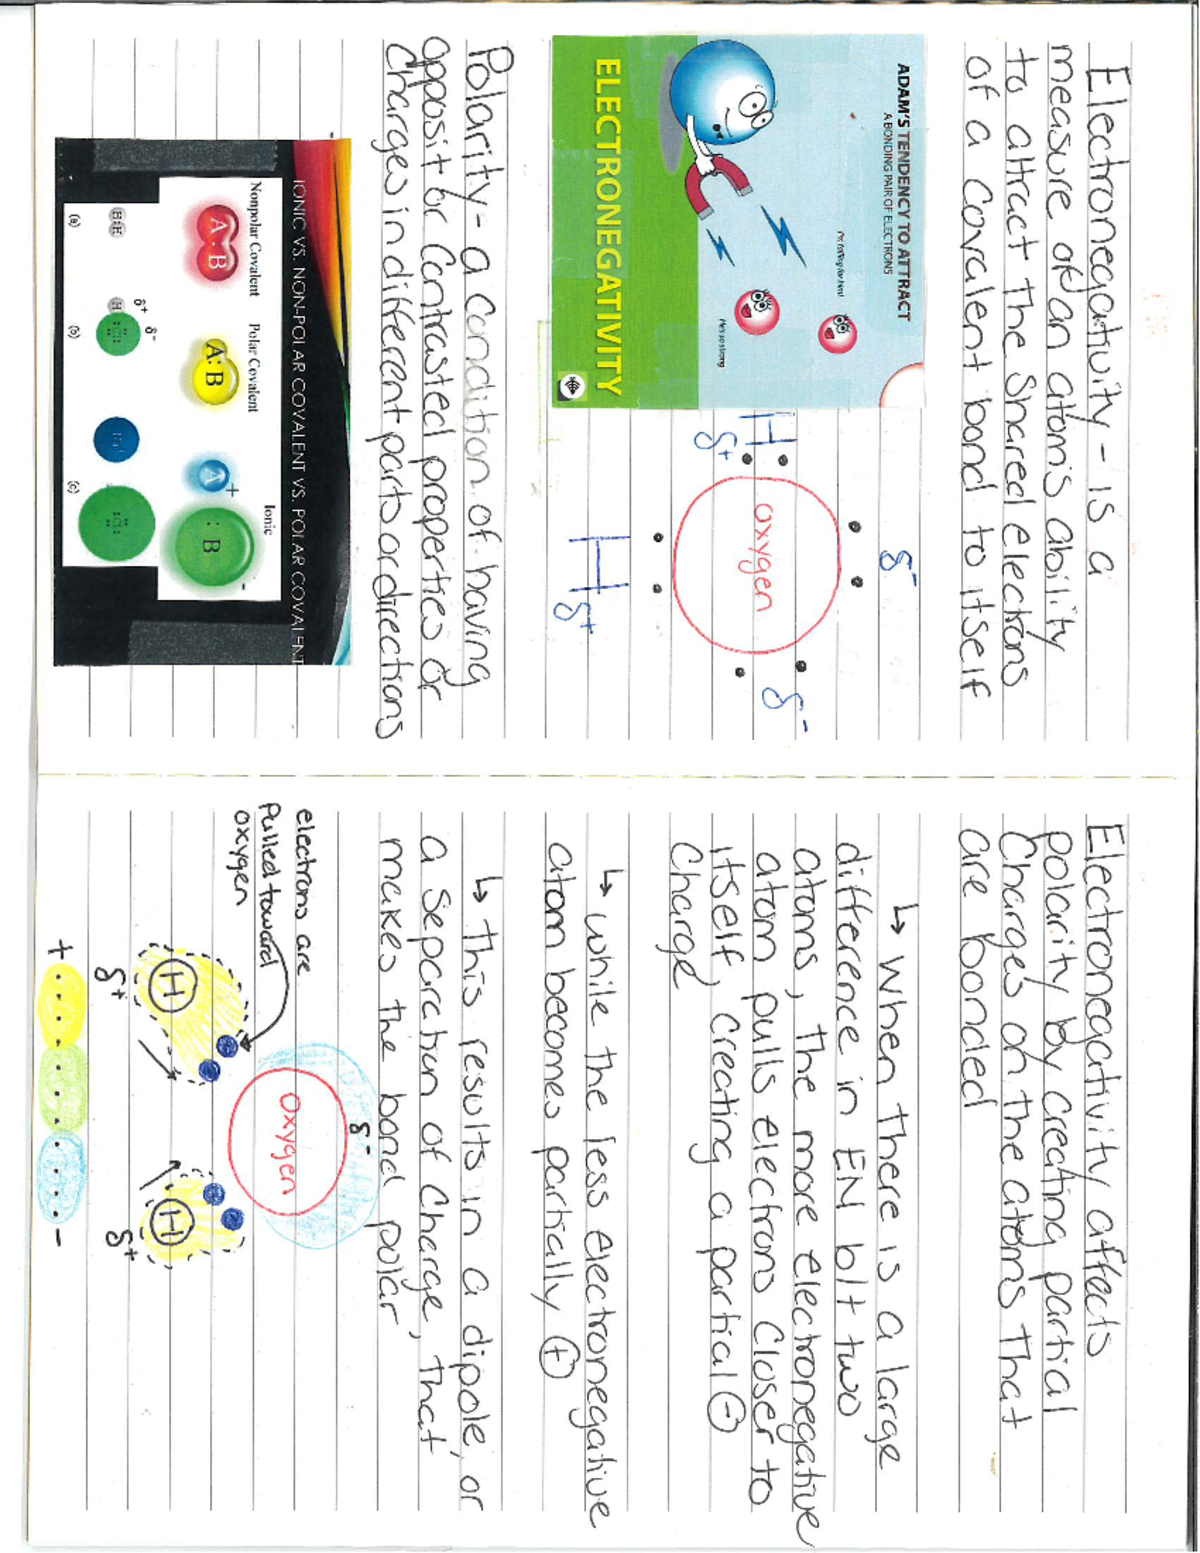 Electronegativity - is a
measure of an atom's ability
to attract the shared electrons
of a covalent bond to itself
ADAM'S TENDENCY TO ATTRACT
A BONDING PAIR OF ELECTRONS
I'm falling for him!
He's so strong
ELECTRONEGATIVITY
δ-
oxygen
δ-
H
δ+
H
δ+
Polarity - a condition of having
opposit or contrasted properties or
charges in different parts or directions
IONIC VS. NON-POLAR COVALENT VS. POLAR COVALENT
Nonpolar Covalent
Polar Covalent
Ionic
A : B
A : B
A +
: B -
H : H
δ+ δ-
H : Cl :
Na+
: Cl :
(a)
(b)
(c)
Electronegativity affects
polarity by creating partial
charges on the atoms that
are bonded
↳ when there is a large
difference in EN b/t two
atoms, the more electronegative
atom pulls electrons closer to
itself, creating a partial ⊖
charge
↳ while the less electronegative
atom becomes partially ⊕
↳ this results in a dipole, or
a separation of charge, that
makes the bond polar
electrons are
pulled toward
oxygen
δ-
oxygen
H
H
δ+
δ+
+ -